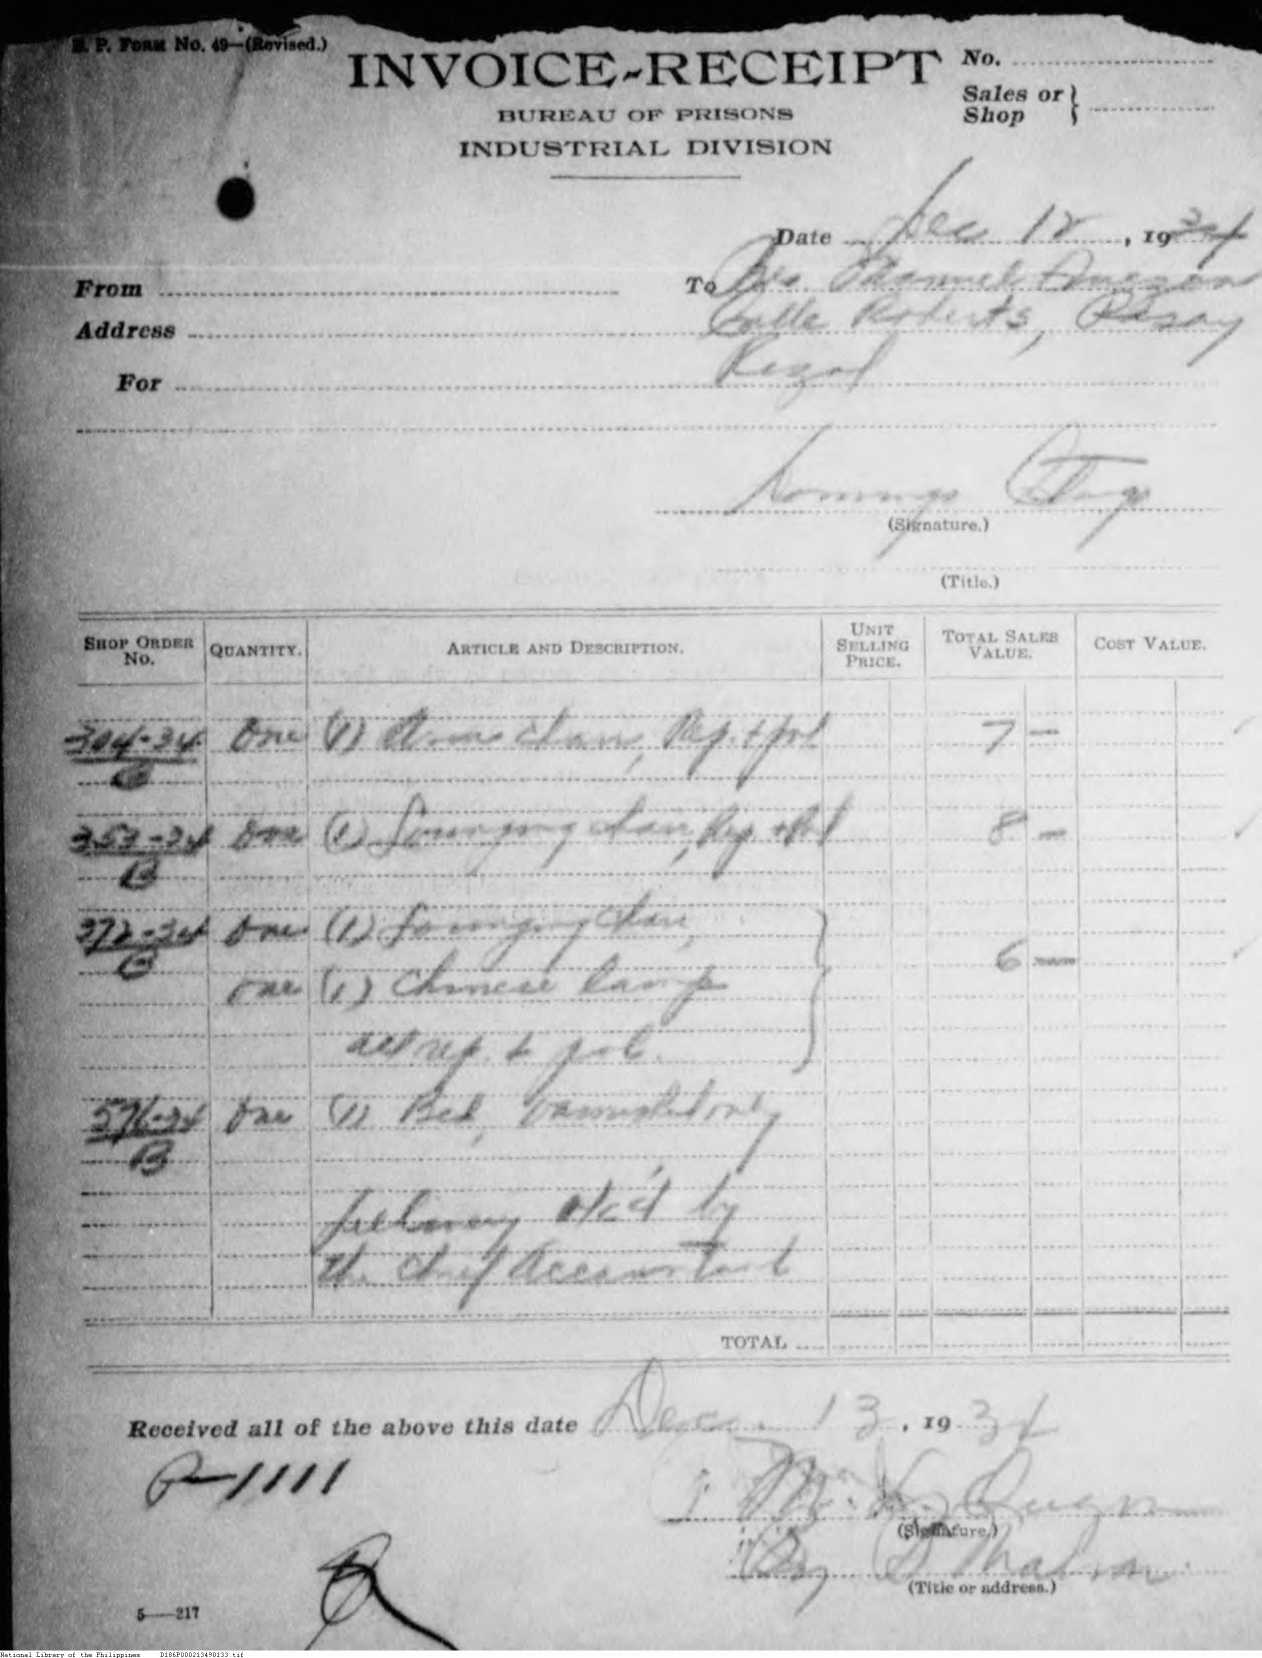 B. P. Form No. 49—(Revised.)
INVOICE-RECEIPT
No.
Sales or
Shop
BUREAU OF PRISONS
INDUSTRIAL DIVISION
Date Dec 12, 1934
From
To Manuel
Address
Calle Roberts, Pasay
For
Rizal
Domingo
(Signature.)
(Title.)
Shop Order No.
Quantity.
Article and Description.
Unit Selling Price.
Total Sales Value.
Cost Value.
304-34 One (1) Arm chair, Rep. & pol 7 —
B
353-34 One (1) Lounging chair, Rep. & Pol 8 —
B
372-34 One (1) Lounging chair,
B
6 —
One (1) Chinese lamp
all rep. & pol.
576-34 One (1) Bed, varnished only
B
Delivery o/c'd by
the Chief Accountant
TOTAL
Received all of the above this date Dec. 13, 1934
P-1111
M.
(Signature.)
By
(Title or address.)
5——217
National Library of the Philippines D186P000213490133.tif